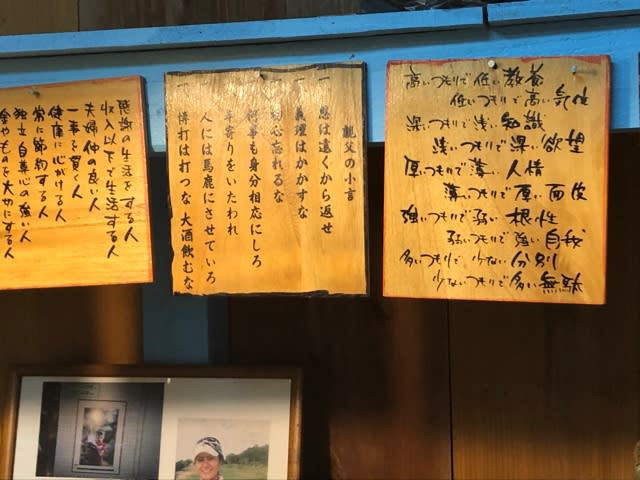 感謝の生活をする人
収入以下で生活する人
夫婦仲の良い人
一事を貫く人
健康に心がける人
常に節約する人
独立自尊心の強い人
金やものを大切にする人
親父の小言
一 恩は遠くから返せ
一 義理はかかすな
初心忘れるな
何事も身分相応にしろ
年寄りをいたわれ
人には馬鹿にさせていろ
一 博打は打つな 大酒飲むな
高いつもりで低い教養
低いつもりで高い気位
深いつもりで浅い知識
浅いつもりで深い欲望
厚いつもりで薄い人情
薄いつもりで厚い面皮
強いつもりで弱い根性
弱いつもりで強い自我
多いつもりで少ない分別
少ないつもりで多い無駄